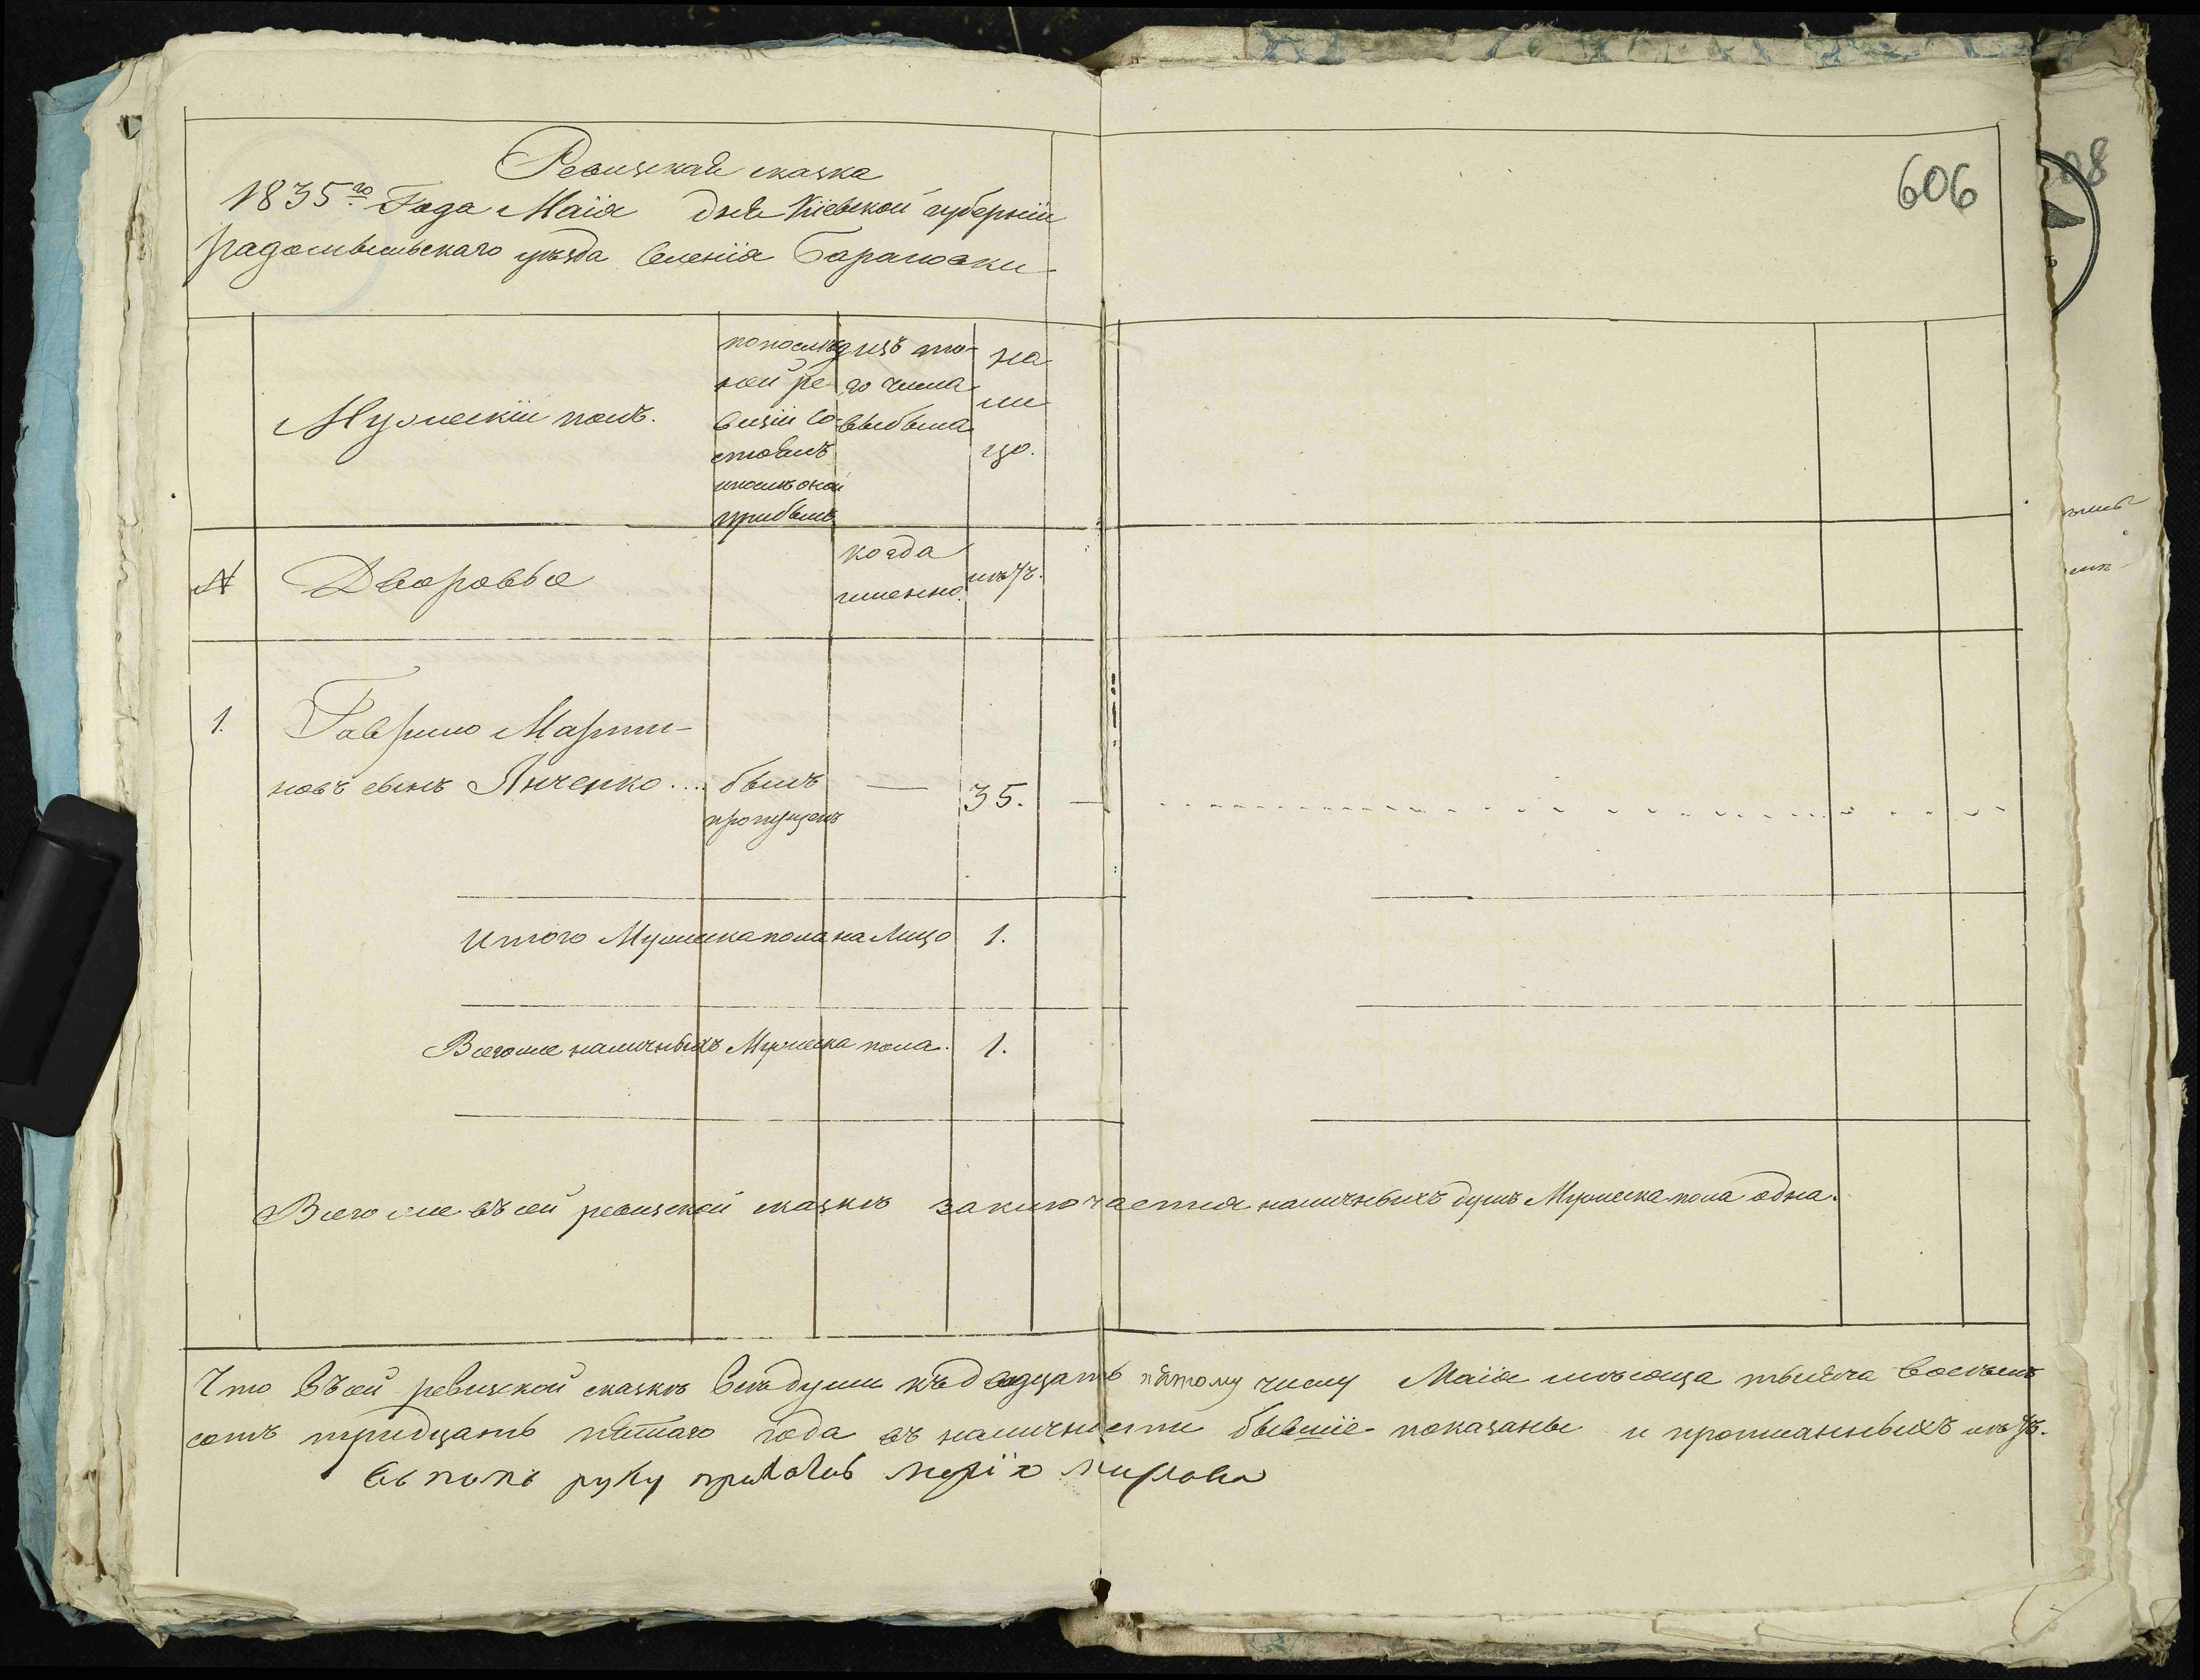 606
Ревизская сказка
1835го Года Маія дня Кіевской губерніи
радомысльскаго уѣзда Селенія Барановки
Мужескій полъ.
попослѣд
ней ре
визіи со
стоялъ
ипослѣ оной
прибылъ
изъ то-
го числа
выбыло
на
ли
цо.
N Дворовые
когда
именно
лѣта.
1. Гаврило Марти-
новъ сынъ Янченко.... былъ — 35. —
пропущенъ
Итого Мужеска пола на Лицо 1.
Всегоже наличныхъ Мужеска пола. 1.
Всего же въ сей ревизской сказкѣ заключается наличныхъ душъ Мужеска пола одна.
Что въ сей ревизской сказкѣ всѣ души къ двадцать пятому числу Маія мѣсяца тысяча восемъ
сотъ тридцать пятаго года въ наличности бывшіе показаны и прописанныхъ нѣтъ.
руку приложилъ